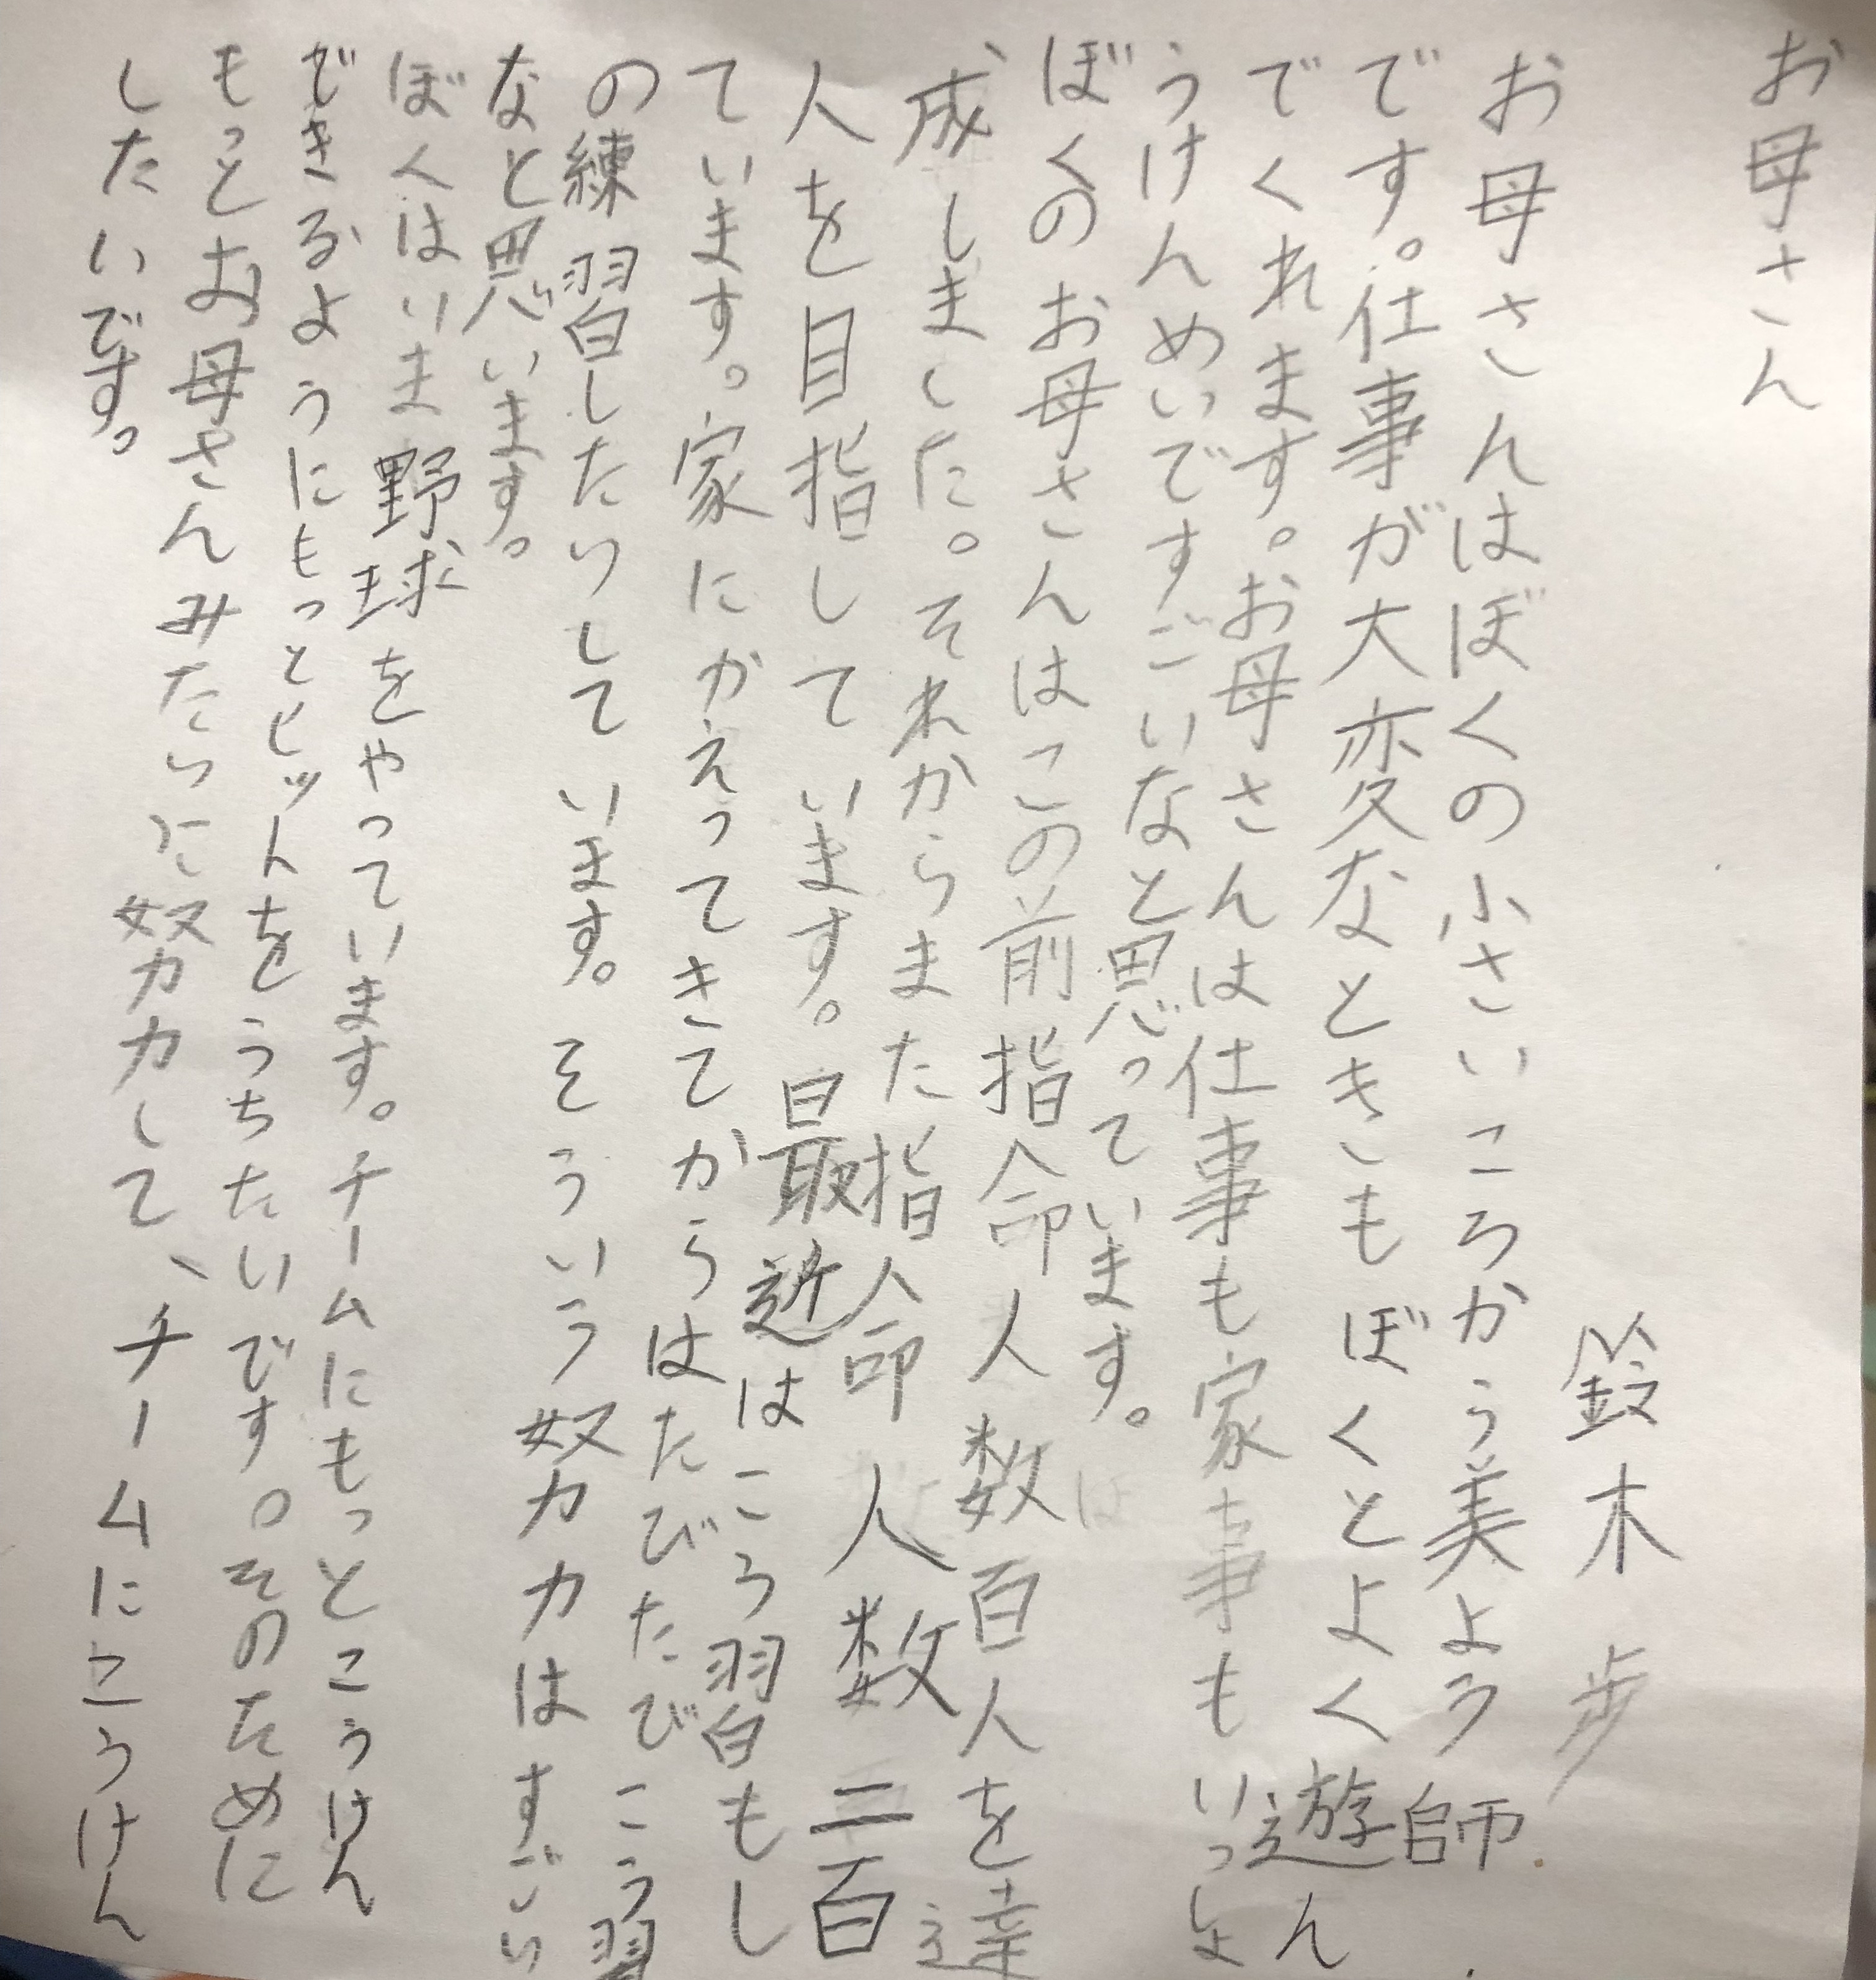 お母さん
鈴木 歩
お母さんはぼくの小さいころから美よう師
です。仕事が大変なときもぼくとよく遊ん
でくれます。お母さんは仕事も家事もいっしょ
うけんめいですごいなと思っています。
ぼくのお母さんはこの前指命人数百人を達
成しました。それからまた指命人数二百
人を目指しています。最近はころ習もし
ています。家にかえってきてからはたびたびこう習
の練習したりしています。そういう努力はすごい
なと思います。
ぼくはいま野球をやっています。チームにもっとこうけん
できるようにもっとヒットをうちたいです。そのために
もっとお母さんみたいに努力して、チームにこうけん
したいです。